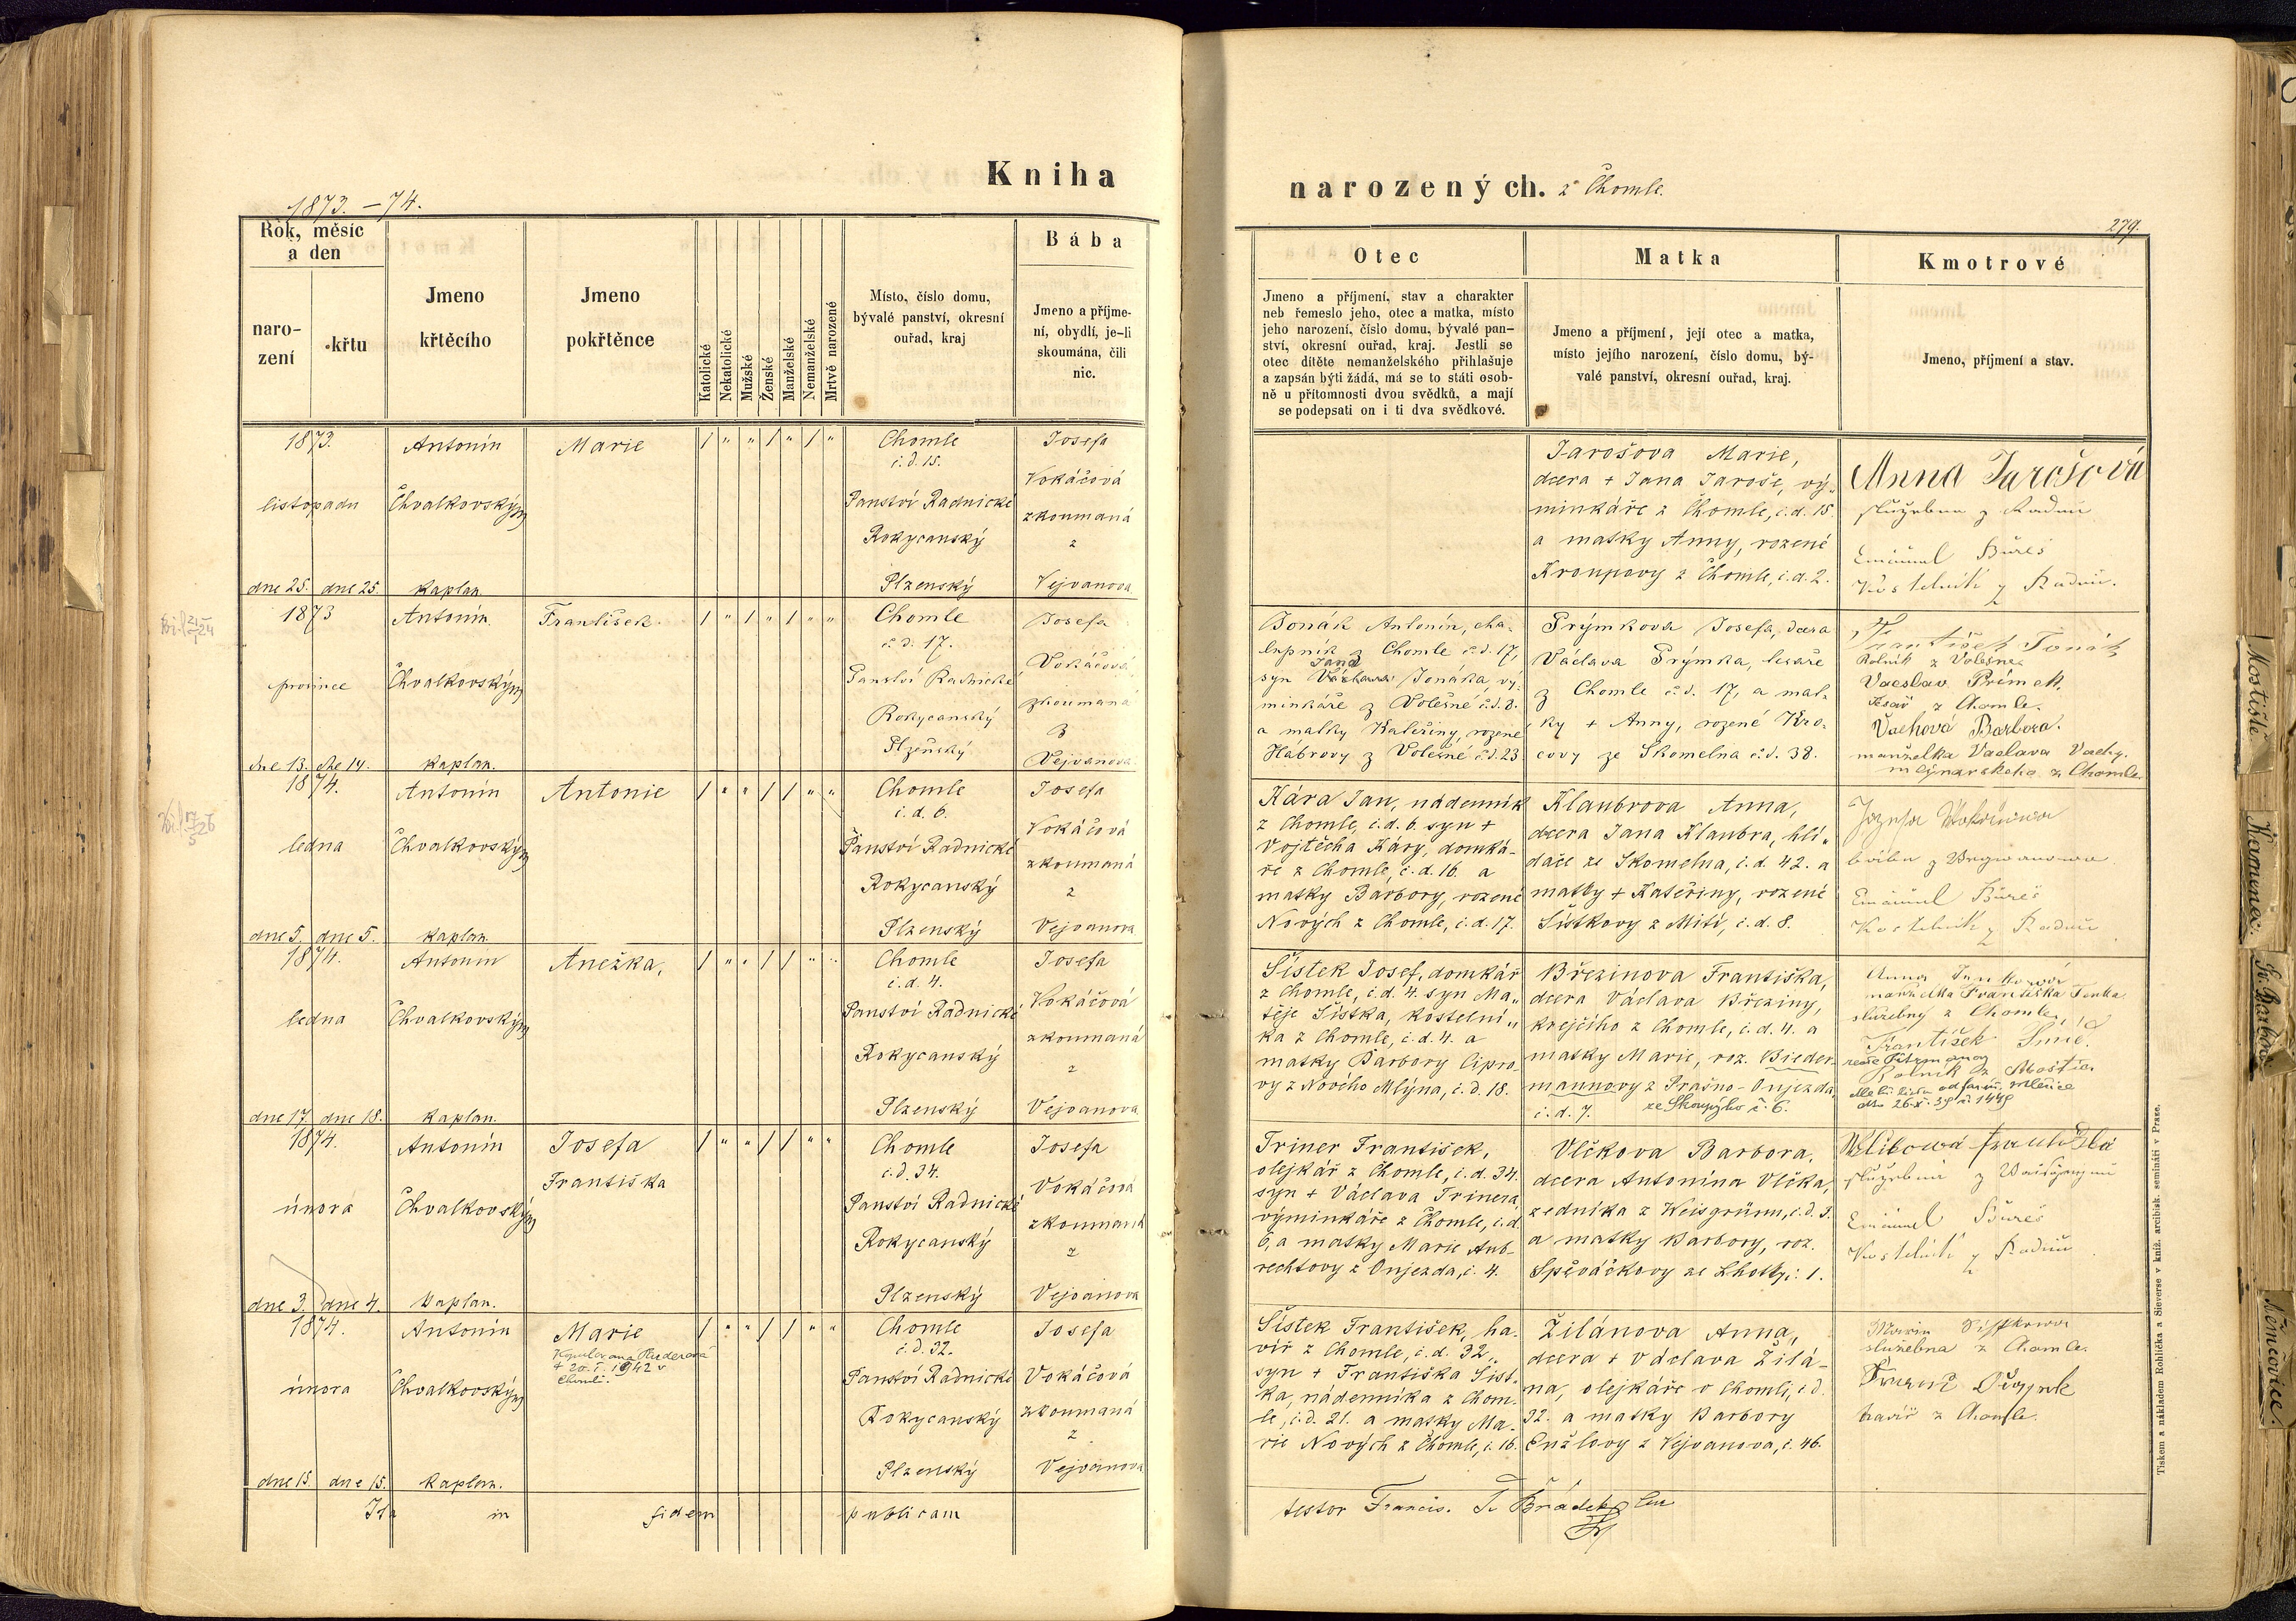 Kniha
narozených. z Chomle.
1873. – 74.
279.
Rok, měsíc
a den
naro-
zení
křtu
Jmeno
křtěcího
Jmeno
pokřtěnce
Katolické
Nekatolické
Mužské
Ženské
Manželské
Nemanželské
Mrtvě narozené
Místo, číslo domu,
bývalé panství, okresní
ouřad, kraj
Bába
Jmeno a příjme-
ní, obydlí, je-li
skoumána, čili
nic.
Otec
Jmeno a příjmení, stav a charakter
neb řemeslo jeho, otec a matka, místo
jeho narození, číslo domu, bývalé pan-
ství, okresní ouřad, kraj. Jestli se
otec dítěte nemanželského přihlašuje
a zapsán býti žádá, má se to státi osob-
ně u přítomnosti dvou svědků, a mají
se podepsati on i ti dva svědkové.
Matka
Jmeno a příjmení, její otec a matka,
místo jejího narození, číslo domu, bý-
valé panství, okresní ouřad, kraj.
Kmotrové
Jmeno, příjmení a stav.
1873.
listopadu
dne 25. dne 25.
Antonín
Chvalkovský
kaplan
Marie
/ " " / " / "
Chomle
č.d. 15.
Panství Radnické
Rokycanský
Plzenský
Josefa
Vokáčová
zkoumaná
z
Vejvanova
Jarošova Marie,
dcera + Jana Jaroše, vý-
minkáře z Chomle, č.d. 15
a matky Anny, rozené
Kroupovy z Chomle, č.d. 2.
Anna Jarošová
služebna z Radnic
Emanuel Bureš
Kostelník z Radnic.
1873
prosince
dne 13. dne 14.
Antonín
Chvalkovský
kaplan.
František
/ " / " / " "
Chomle
č.d. 17.
Panství Radnické
Rokycanský
Plzeňský
Josefa
Vokáčová
zkoumaná
z
Vejvanova
Jonák Antonín, cha-
lupník z Chomle č.d. 17,
Jana
syn Václava Jonáka, vý-
minkáře z Volešné č.d. 8.
a matky Kateřiny, rozené
Hábrovy z Volešné č.d. 23
Prýmkova Josefa, dcera
Václava Prýmka, tesaře
z Chomle č.d. 17, a mat-
ky + Anny, rozené Kro-
covy ze Skomelna č.d. 38.
František Jonák
Rolník z Volešne
Vaeslav Prímek
Tesař z Chomle.
Vachová Barbora.
manželka Vaclava Vachy.
mlynarskeho z Chomle
1874.
ledna
dne 5. dne 5.
Antonín
Chvalkovský
kaplan.
Antonie
/ " " / / " "
Chomle
č.d. 6.
Panství Radnické
Rokycanský
Plzenský
Josefa
Vokáčová
zkoumaná
z
Vejvanova
Kára Jan, nádenník
z Chomle, č.d. 6. syn +
Vojtěcha Káry, domká-
ře z Chomle, č.d. 16. a
matky Barbory, rozené
Nových z Chomle, č.d. 17.
Klaubrova Anna,
dcera Jana Klaubra, hlí-
dače ze Skomelna, č.d. 42. a
matky + Kateřiny, rozené
Šístkovy z Mití, č.d. 8.
Emanuel Bureš
Kostelník z Radnic
1874.
ledna
dne 17. dne 18.
Antonín
Chvalkovský
kaplan.
Anežka,
/ " " / / " "
Chomle
č.d. 4.
Panství Radnické
Rokycanský
Plzenský
Josefa
Vokáčová
zkoumaná
z
Vejvanova
Šístek Josef, domkář
z Chomle, č.d. 4. syn Ma-
těje Šístka, kostelní-
ka z Chomle, č.d. 4. a
matky Barbory Cipro-
vy z Nového Mlýna, č.d. 18.
Březinova Františka,
dcera Václava Březiny,
krejčího z Chomle, č.d. 4. a
matky Marie, roz. Bieder-
mannovy z Prašno-Oujezda,
č.d. 7. ze Skoupýho č. 6.
manželka Františka Jenka
služebný z Chomle,
František Šmíd.
Rolník z Mostic
1874.
února
dne 3. dne 4.
Antonín
Chvalkovský
kaplan.
Josefa
Františka
/ " " / / " "
Chomle
č.d. 34.
Panství Radnické
Rokycanský
Plzenský
Josefa
Vokáčová
zkoumaná
z
Vejvanova
Triner František,
olejkář z Chomle, č.d. 34.
syn + Václava Trinera
výminkáře z Chomle, č.d.
6, a matky Marie Aub-
rechtovy z Oujezda, č. 4.
Vlčkova Barbora,
dcera Antonína Vlčka,
zedníka z Weisgrünu, č.d. 3.
a matky Barbory, roz.
Spěváčkovy ze Lhotky č. 1.
Emanuel Bureš
Kostelník z Radnic
1874.
února
dne 15. dne 15.
Antonín
Chvalkovský
kaplan.
Marie
+ 20.I. 1942 v
Chomli.
/ " " / / " "
Chomle
č.d. 32.
Panství Radnické
Rokycanský
Plzenský
Josefa
Vokáčová
zkoumaná
z
Vejvanova
Šístek František, ha-
víř z Chomle, č.d. 32,
syn + Františka Šíst-
ka, nádenníka z Chom-
le, č.d. 21. a matky Ma-
rie Nových z Chomle, č. 16.
Žilánova Anna,
dcera + Václava Žilá-
na, olejkáře v Chomli, č.d.
32. a matky Barbory
Cuzlovy z Vejvanova, č. 46.
služebna z Chomle.
havíř z Chomle.
Ita in fidem publicam
testor Francis.
Tiskem a nákladem Rohlíčka a Sieverse v kníž. arcibisk. semináři v Praze.
Mostiště
Kamenec.
Sv. Barbora
Němčovice.